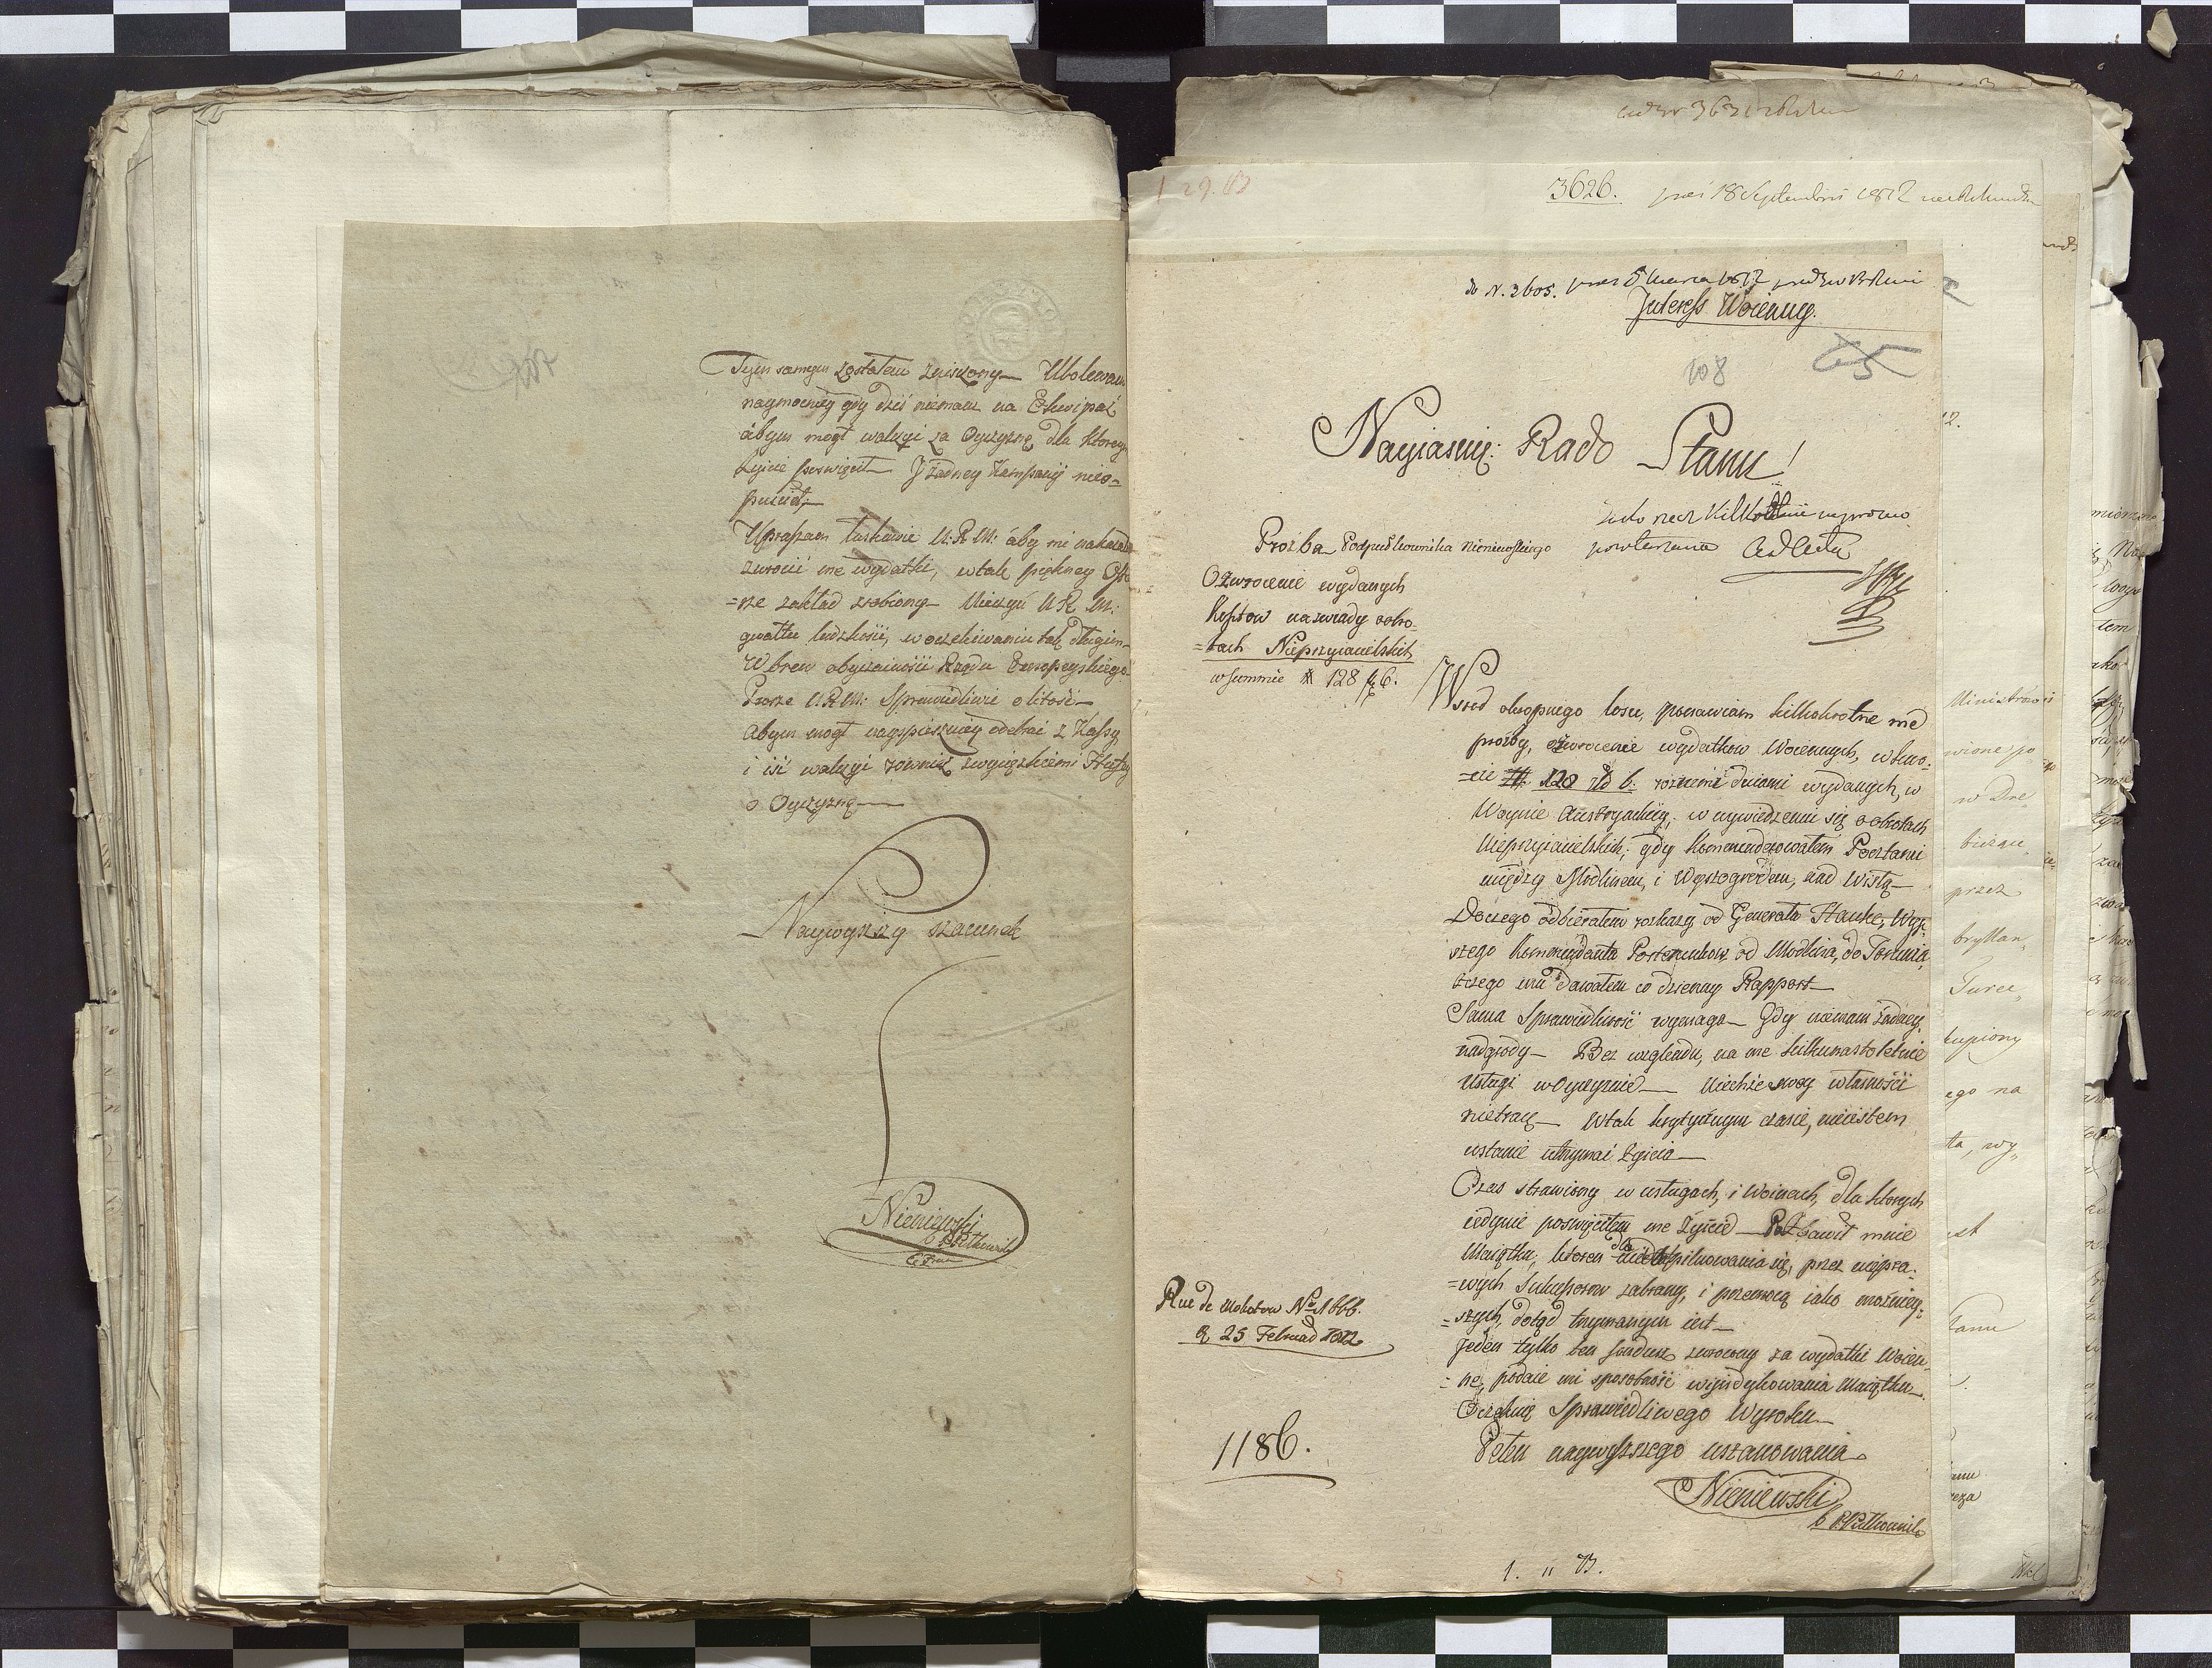 Tym samym zostałem zniszczony— Ubolewam
naymocniéy gdy dziś niemam na Ekwipaż
abym mogł walczyć za Oyczyznę, dla ktorey
życie poswięcił— J żadney Kampanij nieo=
puścił.—
Upraszam łaskawie U: R: M: áby mi nakazała
zwrócić me wydatki, w tak piękney
=rze zakład zrobiony— Nieczyń U. R. M:
gwałtu ludzkości, w oczekiwaniu tak długim—
Wbrew obyczainości Rządu Europeyskiego—
Proszę U. R. M: Sprawiedliwie o litość—
Abym mogł nayspieszniey odebrać z Kassy
i iść walczyć rowniez zwycięzkiemi Hufcy
o Oyczyznę—
Naywyższy szacunek
Nieniewski
b PPułkownik
3626. 18 Septembris 1812
do N. 3605. 5 Marca 1812
Jnteress Woienny.
108
65
Nayiasniey: Rado Stanu!
Jako rzecz Kilkokrotnie
powtarzana ad Acta
Prozba Podpułkownika Nieniewskiego
O zwrocenie wydanych
Kosztow na zwiady o obro=
=tach Nieprzyiacielskich
w summie # 128 f 6.
Wsrod okropnego losu, ponawiam kilkokrotne me
proźby, o zwrocenie wydatkow Woiennych, w kwo=
=cie # 128 zł 6. roznemi dniami wydanych, w
Woynie Austryackiey; w wywiedzeniu się o obrotach
Nieprzyiacielskich; gdy Kommenderowałem Pocztami
między Modlinem, i Wyszogrodem, nad Wisłą—
Do czego odbierałem rozkazy od Generała Hauke, Wyz=
szego Kommendanta Posterunkow, od Modlina, do Torunia,
z czego mu dawałem co dzienny Rapport—
Sama Sprawiedliwość wymaga— Gdy niemam żadney
nadgrody— Bez względu, na me kilkunasto letnie
usługi w Oyczyznie— Niechże mey własności
nietracę— W tak krytycznym czasie, nieiestem
wstanie utrzymać życia—
Czas strawiony w usługach, i Woinach, dla ktorych
iedynie poswięciłem me życie— Pozbawił mnie
Maiątku, ktoren dla niedopilnowania się, przez niepra=
=wych Sukcessorow zabrany, i przemocą iako mozniey=
=szych, dotąd trzymanym iest—
Jeden tylko ten fundusz zwrocony za wydatki Woien=
=ne, podaie mi sposobność windykowania Maiątku—
Oczekuię Sprawiedliwego Wyroku—
Pełen naywyższego uszanowania
Nieniewski
b PPułkownik
Rue de Mokotow No 1666.
d. 25 Februar 1812
1186.
1. 11 B.